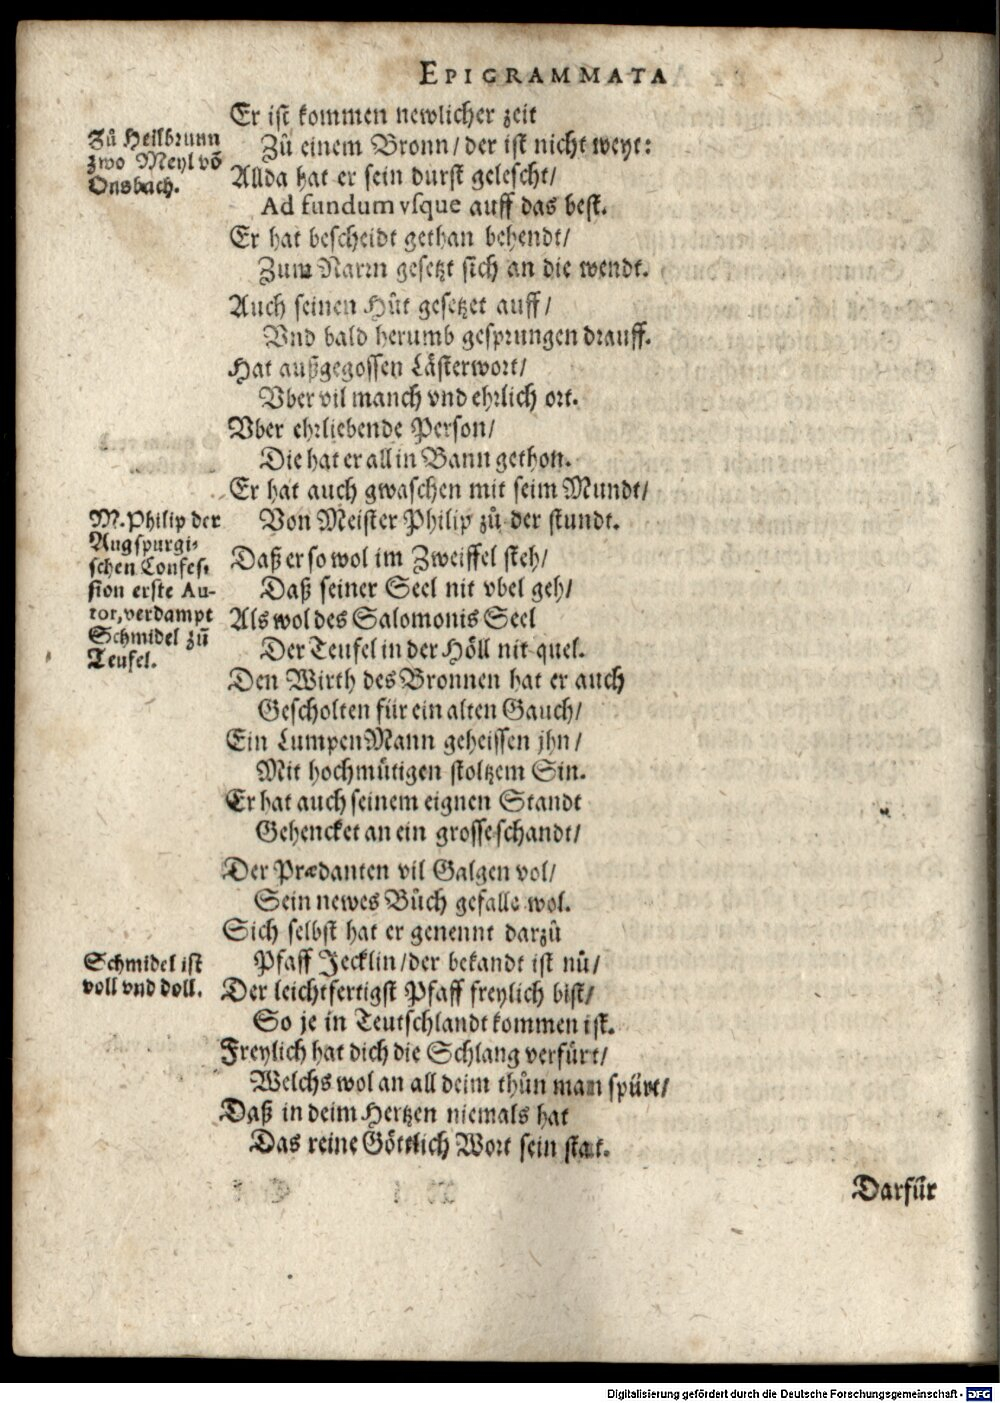 EPIGRAMMATA
Er ist kommen newlicher zeit
Zů Heilbrunn
zwo Meyl võ
Onsbach.
Zů einem Bronn/ der ist nicht weyt:
Allda hat er sein durst gelescht/
Ad fundum vsque auff das best.
Er hat bescheidt gethan behendt/
Zum Narrn gesetzt sich an die wendt.
Auch seinen Hůt gesetzet auff/
Vnd bald herumb gesprungen drauff.
Hat außgegossen Lästerwort/
Vber vil manch vnd ehrlich ort.
Vber ehrliebende Person/
Die hat er all in Bann gethon.
Er hat auch gwaschen mit seim Mundt/
Von Meister Philip zů der stundt.
M. Philip der
Augspurgi-
schen Confes-
sion erste Au-
tor, verdampt
Schmidel zů
Teufel.
Daß er so wol im Zweiffel steh/
Daß seiner Seel nit vbel geh/
Als wol des Salomonis Seel
Der Teufel in der Höll nit quel.
Den Wirth des Bronnen hat er auch
Gescholten für ein alten Gauch/
Ein Lumpen Mann geheissen jhn/
Mit hochmütigen stoltzem Sin.
Er hat auch seinem eignen Standt
Gehencket an ein grosse schandt/
Der Prædanten vil Galgen vol/
Sein newes Bůch gefalle wol.
Sich selbst hat er genennt darzů
Pfaff Jecklin/ der bekandt ist nů/
Schmidel ist
voll vnd doll.
Der leichtfertigst Pfaff freylich bist/
So je in Teutschlandt kommen ist.
Freylich hat dich die Schlang verfürt/
Welchs wol an all deim thůn man spürt/
Daß in deim Hertzen niemals hat
Das reine Göttlich Wort sein stat.
Darfür
Digitalisierung gefördert durch die Deutsche Forschungsgemeinschaft - DFG